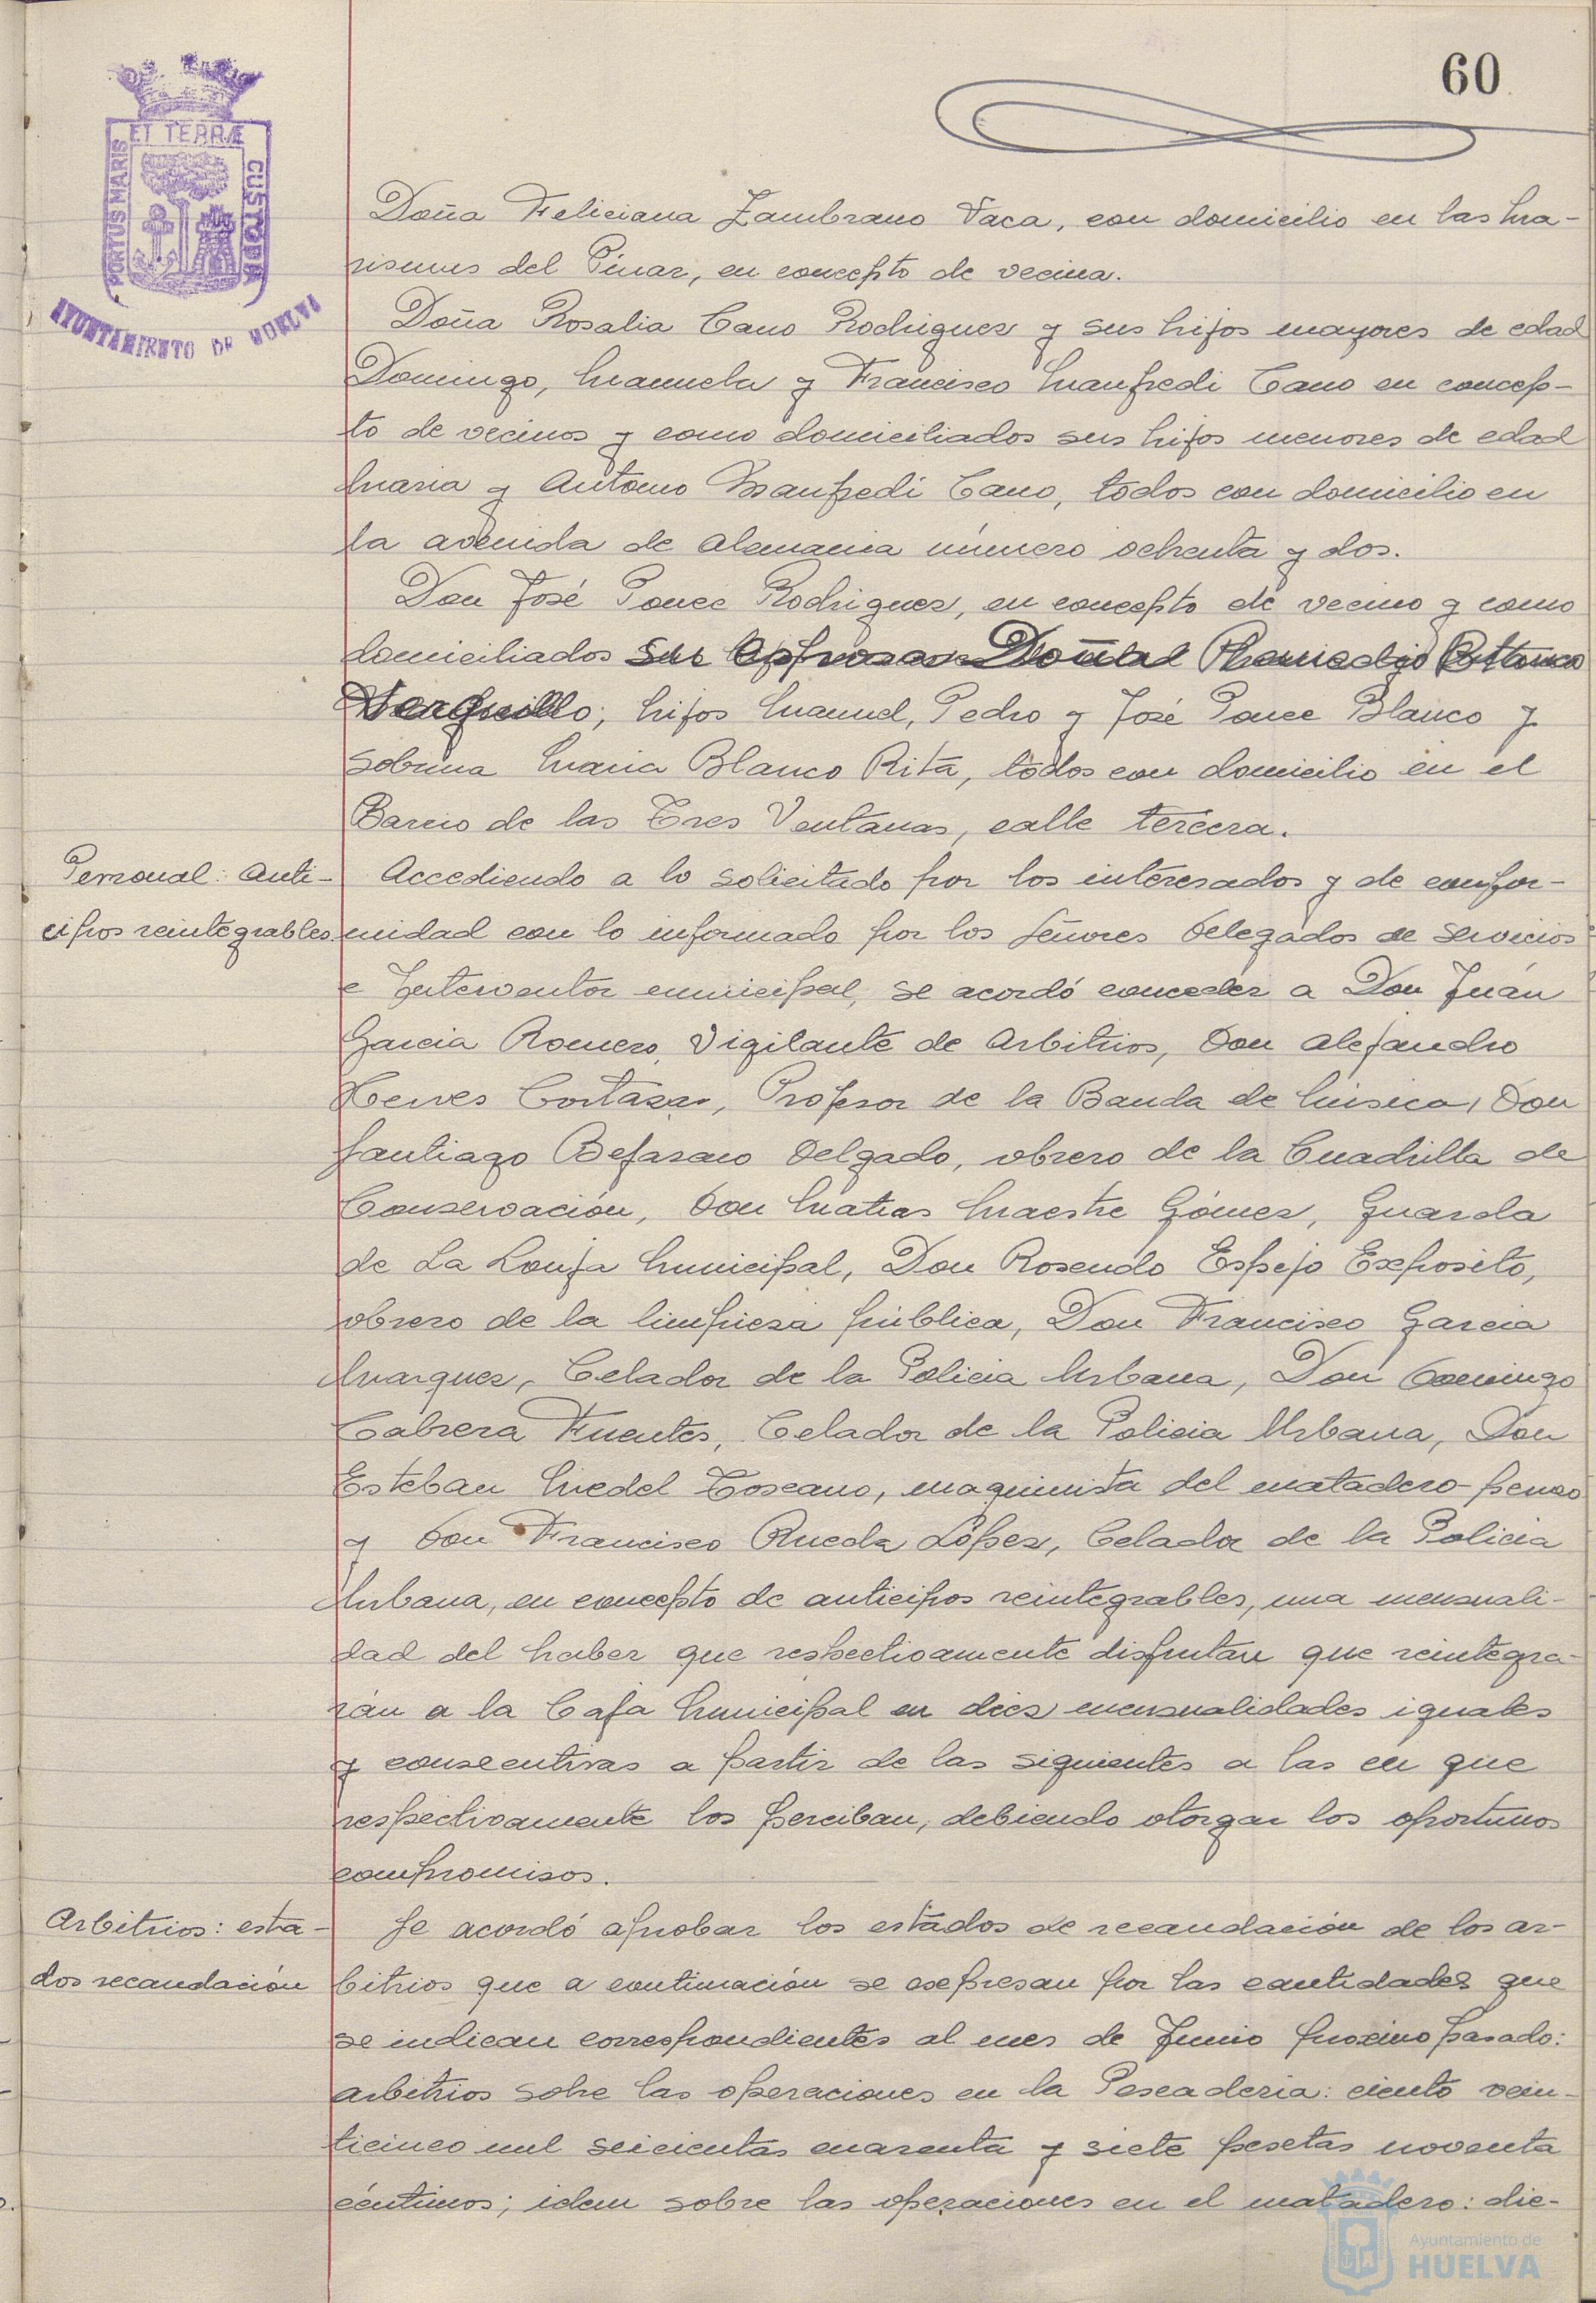 60
ET TERRÆ
PORTUS MARIS
CUSTODIA
AYUNTAMIENTO DE HUELVA
Doña Feliciana Zambrano Vaca, con domicilio en las Ma-
rismas del Pinar, en concepto de vecina.
Doña Rosalia Cano Rodriguez y sus hijos mayores de edad
Domingo, Manuela y Francisco Manfredi Cano en concep-
to de vecinos y como domiciliados sus hijos menores de edad
Maria y Antonio Manfredi Cano, todos con domicilio en
la avenida de Alemania número ochenta y dos.
Don José Ponce Rodriguez, en concepto de vecino y como
domiciliados
hijos Manuel, Pedro y José Ponce Blanco y
sobrina Maria Blanco Rita, todos con domicilio en el
Barrio de las Tres Ventanas, calle tercera.
Personal: Anti-
cipos reintegrables.
Accediendo a lo solicitado por los interesados y de confor-
midad con lo informado por los Señores Delegados de Servicios
e Interventor municipal, se acordó conceder a Don Juan
Garcia Romero, Vigilante de Arbitrios, Don Alejandro
Cortazar, Profesor de la Banda de Música, Don
Santiago Bejarano Delgado, obrero de la Cuadrilla de
Conservación, Don Matias Maestre Gómez, Guarda
de La Lonja Municipal, Don Rosendo Espejo Exposito,
obrero de la limpieza pública, Don Francisco Garcia
Marquez, Celador de la Policia Urbana, Don Domingo
Cabrera Fuentes, Celador de la Policia Urbana, Don
Esteban Miedel Toscano, maquinista del matadero
y Don Francisco Rueda López, Celador de la Policia
Urbana, en concepto de anticipos reintegrables, una mensuali-
dad del haber que respectivamente disfrutan que reintegra-
rán a la Caja Municipal en diez mensualidades iguales
y consecutivas a partir de las siguientes a las en que
respectivamente los perciban, debiendo otorgar los oportunos
compromisos.
Arbitrios: esta-
dos recaudación
Se acordó aprobar los estados de recaudación de los ar-
bitrios que a continuación se expresan por las cantidades que
se indican correspondientes al mes de Junio proximo pasado:
arbitrios sobre las operaciones en la Pescaderia: ciento vein-
ticinco mil seicientas cuarenta y siete pesetas noventa
céntimos; idem sobre las operaciones en el matadero: die-
Ayuntamiento de
HUELVA